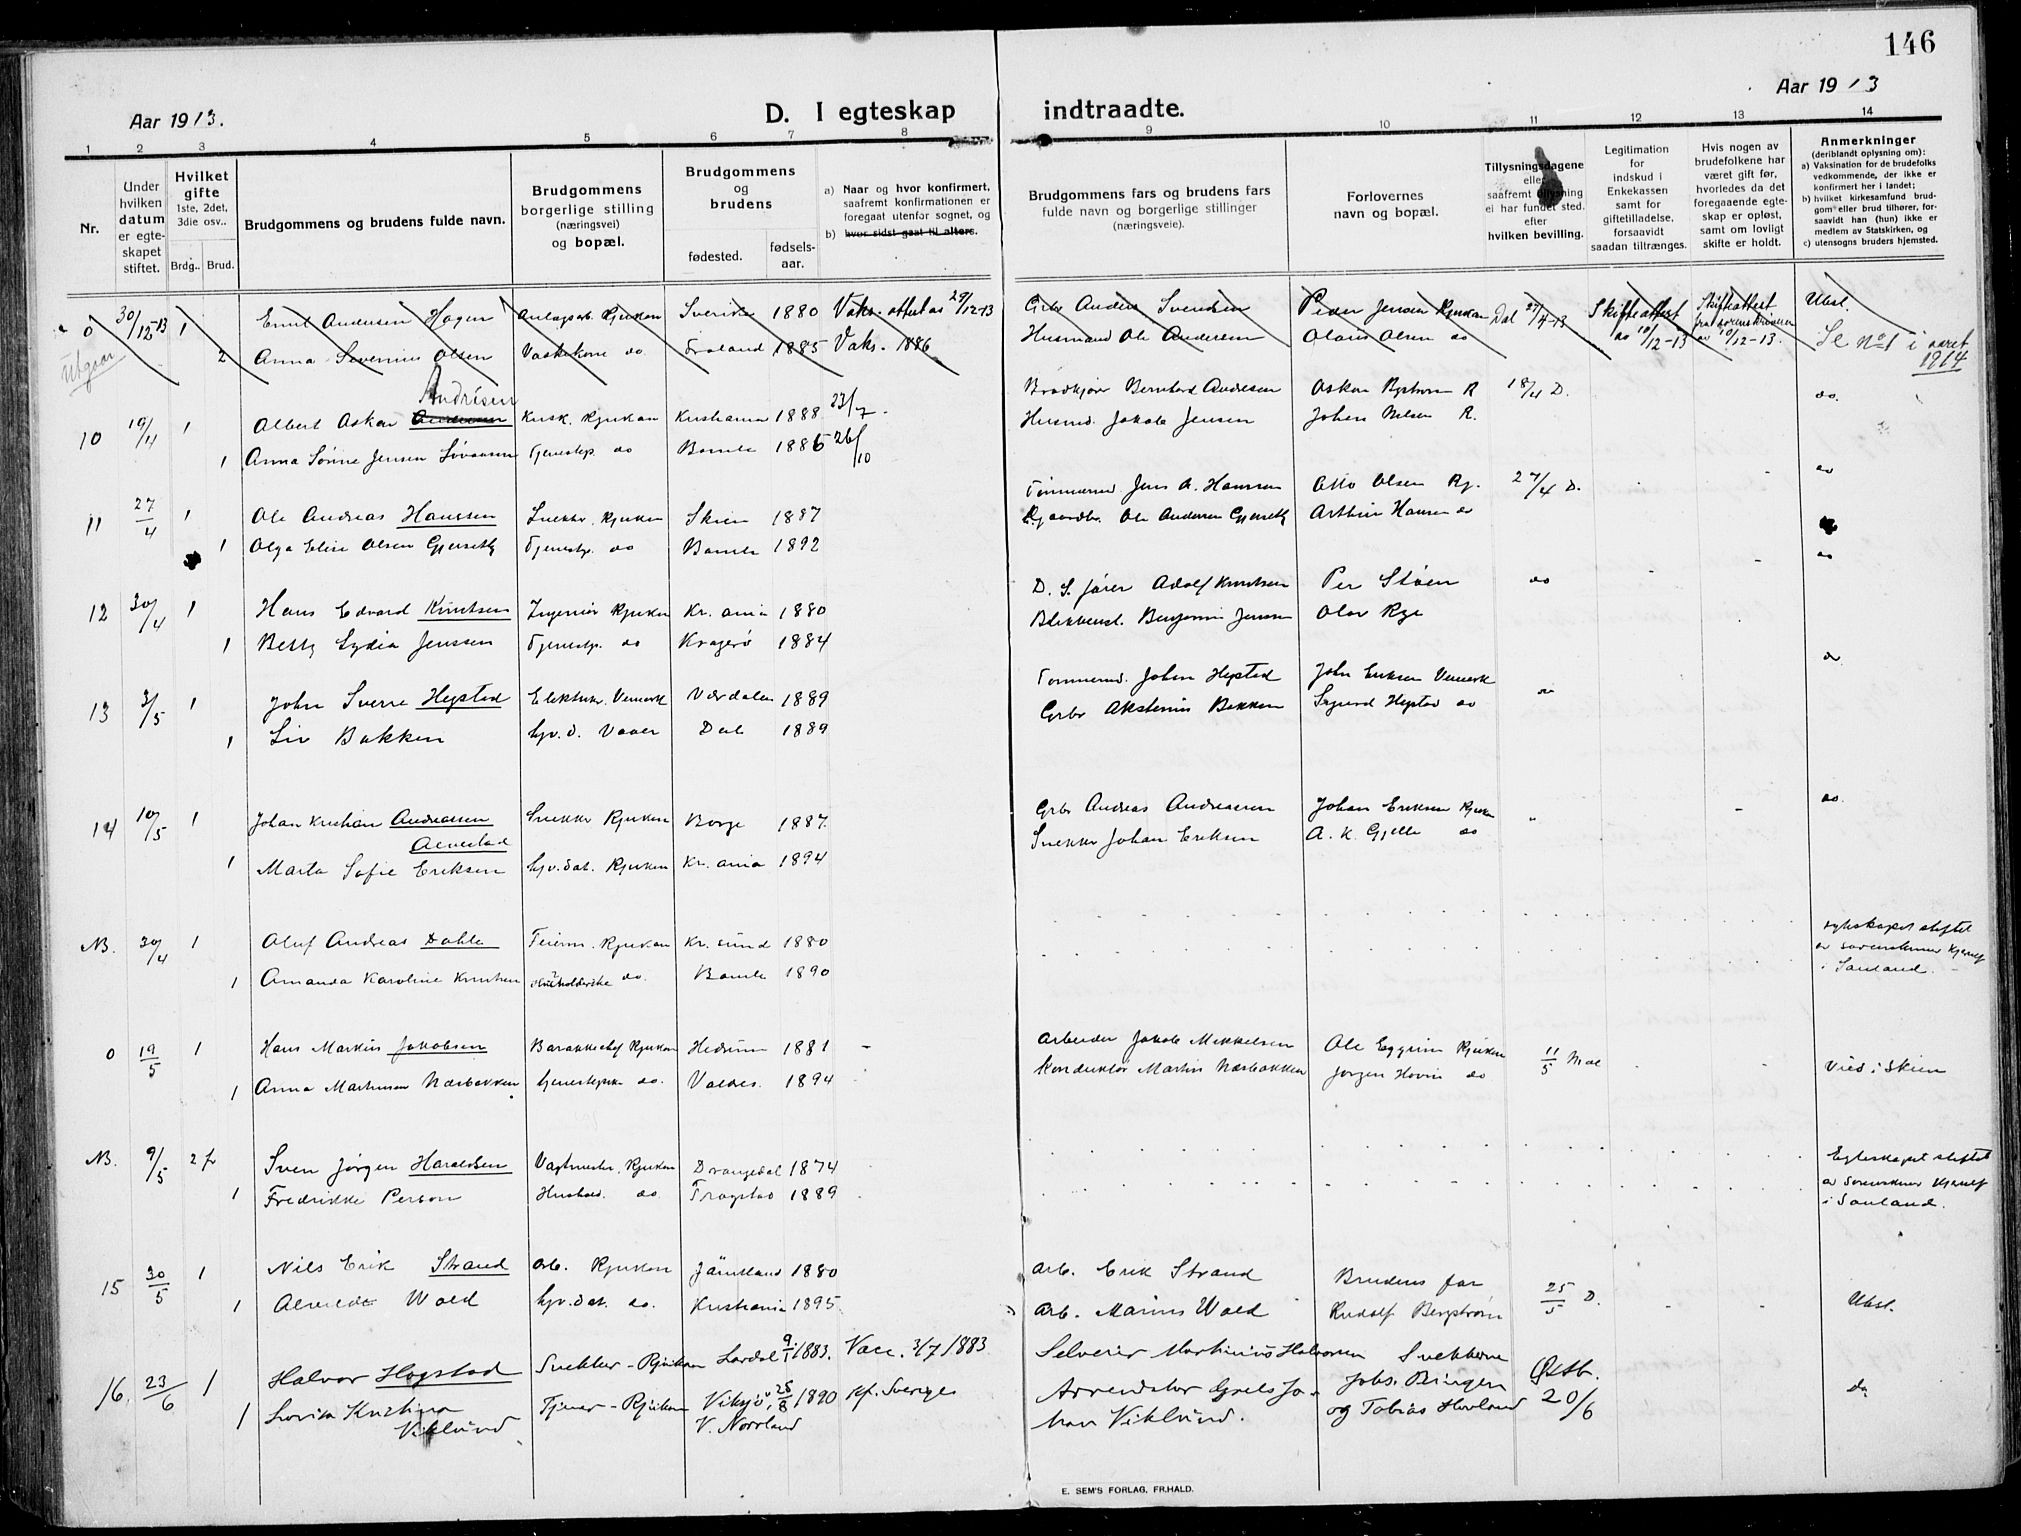 146
Aar 1913.
D. I egteskap indtraadte.
Aar 1913
1 2 3 4 5 6 7 8 9 10 11 12 13 14
Nr.
Under hvilken datum er egteskapet stiftet.
Hvilket gifte 1ste, 2det, 3die osv..
Brdg.. Brud.
Brudgommens og brudens fulde navn.
Brudgommens borgerlige stilling (næringsvei) og bopæl.
Brudgommens og brudens
fødested. fødsels-aar.
a) Naar og hvor konfirmert, saafremt konfirmationen er foregaat utenfor sognet, og
b) hvor sidst gaat til alters.
Brudgommens fars og brudens fars fulde navn og borgerlige stillinger (næringsveie).
Forlovernes navn og bopæl.
Tillysningsdagene eller saafremt tillysning ei har fundet sted, efter hvilken bevilling.
Legitimation for indskud i Enkekassen samt for giftetilladelse, forsaavidt saadan tiltrænges.
Hvis nogen av brudefolkene har været gift før, hvorledes da det foregaaende egteskap er opløst, samt om lovligt skifte er holdt.
Anmerkninger (deriblandt oplysning om): a) Vaksination for de brudefolks vedkommende, der ikke er konfirmert her i landet; b) hvilket kirkesamfund brudgom eller brud tilhører, forsaavidt han (hun) ikke er medlem av Statskirken, og c) utensogns bruders hjemsted.
0 30/12-13 1 Emil Andersen Hagen Anlagsarb. Rjukan Sverige 1880 Vaks. attest av 29/12-13 Grbr Anders Svendsen Peder Jensen Rjukan Dal 27/4-13 Skifteattest av 10/12-13 Skifteattest fra sorenskriveren av 10/12-13. Ubsl.
Utgaar 2 Anna Severine Olsen Vaskekone do. Froland 1885 Vaks. 1886 Husmand Ole Andersen Olaus Olsen do Se no 1 i aaret 1914
10 19/4 1 Albert Oskar Andrisen Kusk. Rjukan Kristiania 1888 23/7. Brødkjører Bernhard Andresen Oskar Bystrøm R 18/4 D. do.
1 Anna Sønne Jensen Tjenestep. do Bamle 1886 26/10 Husmd. Jakob Jensen Johan Nelsen R.
11 27/4 1 Ole Andreas Hanssen Snekker. Rjukan Skien 1887 Tømmermd. Jens A. Hanssen Otto Olsen Rj. 27/4 D. do
1 Olga Elise Olsen Gjerseth Tjenestp. do Bamle 1892 Gaardbr. Ole Andersen Gjerseth Arthur Hansen do
12 30/4 1 Hans Edvard Knutsen Ingeniør Rjukan Kr.ania 1880 D. S. fører Adolf Knutsen Per Støen do do
1 Betty Lydia Jenssen Tjenestp. do Kragerø 1884 Blikkensl. Benjamin Jenssen Olav Rye
13 3/5 1 John Sverre Hegstad Elektrikr. Vemork Værdalen 1889 Tømmermd. Johan Hegstad John Eriksen Vemork do do
1 Liv Bakken hjv. d. Vaaer Dal 1889 Grbr Akstenius Bakken Sigurd Hegstad do
14 10/5 1 Johan Kristian Andreassen Snekker Rjukan Borge 1887. Grbr Andreas Andreassen Johan Eriksen Rjukan " do.
Alvestad
1 Marta Sofie Eriksen hjv. dat. Rjukan Kr.ania 1894 Snekker Johan Eriksen A. K. Gjelle do
NB. 30/4 1 Oluf Andreas Dahle Feierm. Rjukan Kr.sund 1880 egteskapet stiftet
1 Amanda Karoline Knutsen Husholderske do. Bamle 1890 av sorenskriver Kjerulf i Sauland.
0 19/5 1 Hans Markus Jakobsen Barakkechef Rjukan Hedrum 1881 - Arbeider Jakob Mikkelsen Ole Eggrim Rjukan 11/5 Mæl
1 Anna Martinsen Næsbakken tjenestepike do. Valdres. 1894 Konduktør Martin Næsbakken Jørgen Hovin do Vied i Skien
NB. 9/5 2 f Sven Jørgen Haraldsen Vagtmester. Rjukan Drangedal 1874 Egteskapet stiftet
1 Fredrikke Person Hushold. do. Trøgstad 1889 av Sorenskriver Kjerulf i Sauland.
15 30/5 1 Nils Erik Strand Arb. Rjukan Jämtland 1880 Arb. Erik Strand Brudens far 25/5 D. Ubsl.
1 Alvilde Wold hjv. dat. do. Kristiania 1895. Arb. Marius Wold Rudolf Bergstrøm
16. 23/6 1 Halvor Hogstad Snekker - Rjukan Lardal 9/1 1883. Vacc. 3/7 1883 Selveier Martinius Halvorsen Snekkerne Østb. 20/6 do
1 Lovisa Kristina Viklund. Tjener - Rjukan Viksjö, 25/8 1890 V. Norrland Kf. Sverige Arrendator Grels Johan Viklund. Johs. Bingen og Tobias Hovland
E. SEM'S FORLAG, FR.HALD.